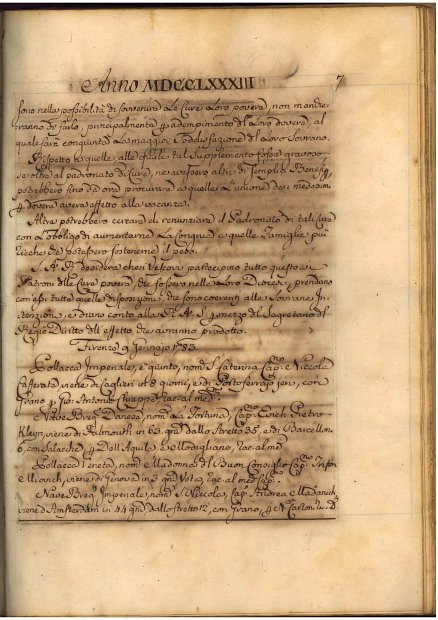 Anno MDCCLXXXIII 7
sono nella possibilità di sovvenire le Cure, e loro povere, non mancheranno
di farlo, principalmente adempimento loro dovere, al
quale sarà congiunta la maggior Soddisfazione loro Sovrano.
Rispetto a quelle, alle quali tal Supplemento fosse gravoso
se oltre al padronato di Cure, ne avessero altri di Semplici Benefizi
potrebbero fino da ora procurare a quelle l'unione de' medesimi
dovere avere effetto alla vacanza.
Altre potrebbero cercare di renunziare il Padronato di tali Cure
con l'obbligo di aumentarne la Congrua a quelle Famiglie più
ricche che potessero sostenerne il peso.
S. A. R. desidera che i Vescovi partecipino tutto questo a
Patroni delle Cure povere, che sono nelle loro Diocesi, prendano
con essi tutte quelle disposizioni, che sono coerenti alle Sovrane Intenzioni,
e diano conto alla R. A. S. mezzo del Segretario del
Regio Diritto dell' effetto che avranno prodotto.
Firenze 9 Gennajo 1783
Pollacca Imperiale, è giunto, nom.ª S. Caterina Cap.no Niccola
viene di Caglieri in 8 giorni, e di Portoferrajo jeri, con
Grano Gio: Antonio Chiappe rac. al med.º
Nave Danese, nom.ª La Fortuna Cap.no Pietro
Kleyn, viene di Falmouth in 65. gni dallo Stretto 35, e di Barcellona
6, con Salacche, Dell'Aquila, e Modigliano, rac. al med.º
Pollacca Veneta, nom.ª Madonna del Buon Consiglio Cap.no Trifon
Milanich, viene di Genova in 3 gni Vota, rac. al med.º Cap.no
Nave Imperiale, nom.ª S. Niccola, Cap.no Andrea
viene d'Amsterdam in 44 gni dallo Stretto 12, con Grano,